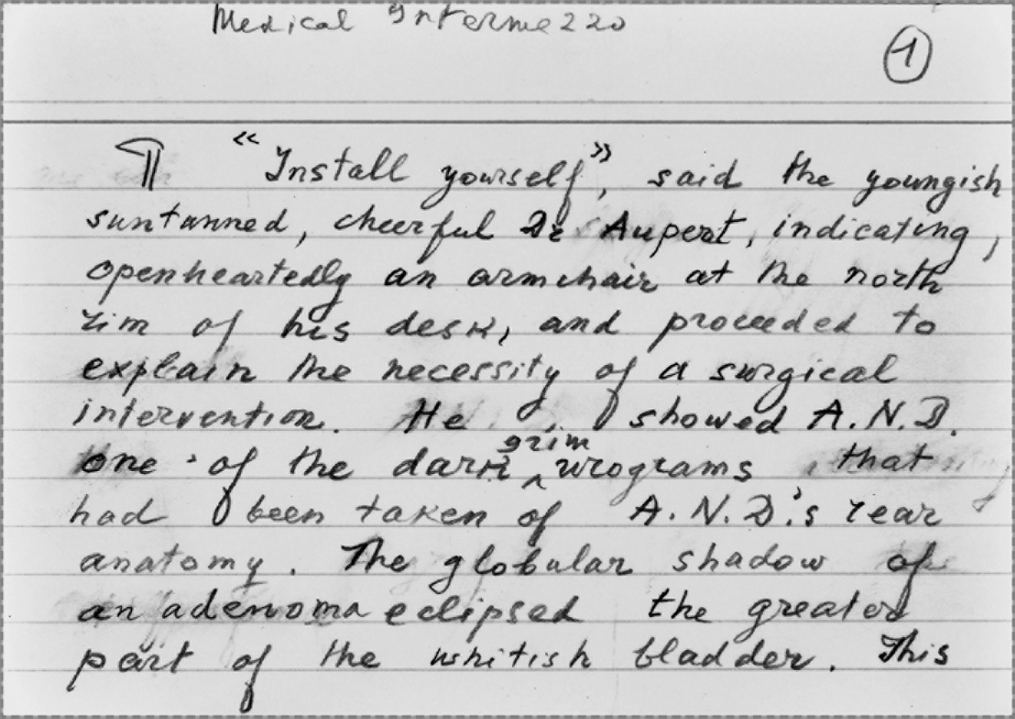 Medical Intermezzo
1
¶ "Install yourself", said the youngish
suntanned, cheerful Dr Aupert, indicating,
openheartedly an armchair at the north
rim of his desk, and proceeded to
explain the necessity of a surgical
intervention. He showed A.N.D.
one of the dark ^grim urograms that
had been taken of A.N.D.'s rear
anatomy. The globular shadow of
an adenoma eclipsed the greater
part of the whitish bladder. This